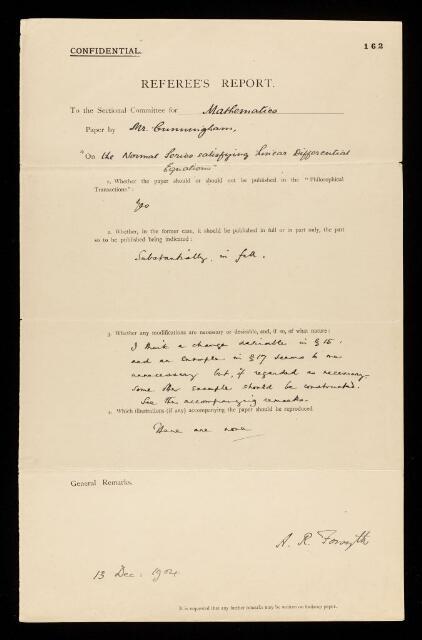 CONFIDENTIAL.
162
REFEREE'S REPORT.
To the Sectional Committee for Mathematics
Paper by Mr. Cunningham,
"On the Normal Series satisfying Linear Differential
Equations"
1. Whether the paper should or should not be published in the "Philosophical
Transactions":
Yes
2. Whether, in the former case, it should be published in full or in part only, the part
so to be published being indicated:
Substantially, in full.
3. Whether any modifications are necessary or desirable, and, if so, of what nature:
I think a change desirable in § 15,
and an example in § 17 seems to me
unnecessary but, if regarded as necessary,
some other example should be constructed.
See the accompanying remarks.
4. Which illustrations (if any) accompanying the paper should be reproduced
There are none
General Remarks.
A. R. Forsyth
13 Dec: 1904
It is requested that any further remarks may be written on foolscap paper.